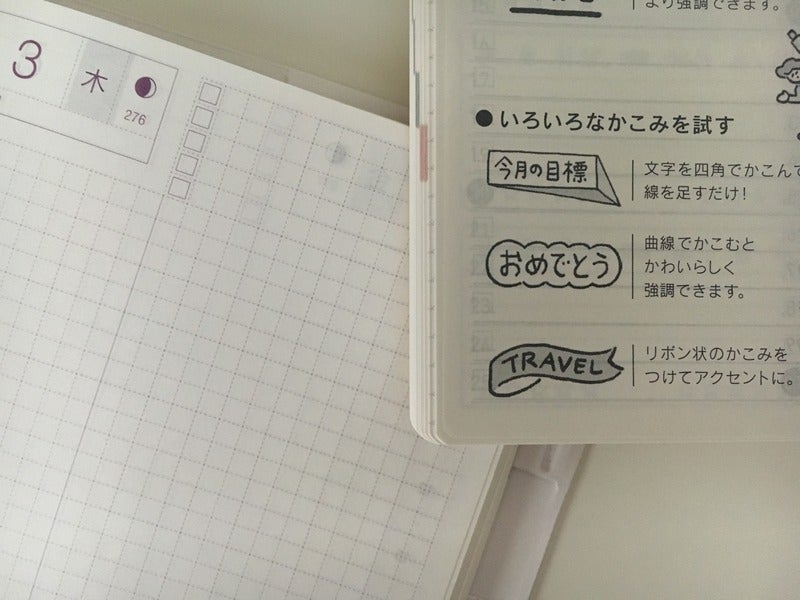 3
木
276
より強調できます。
●いろいろなかこみを試す
今月の目標
文字を四角でかこんで
線を足すだけ!
おめでとう
曲線でかこむと
かわいらしく
強調できます。
TRAVEL
リボン状のかこみを
つけてアクセントに。